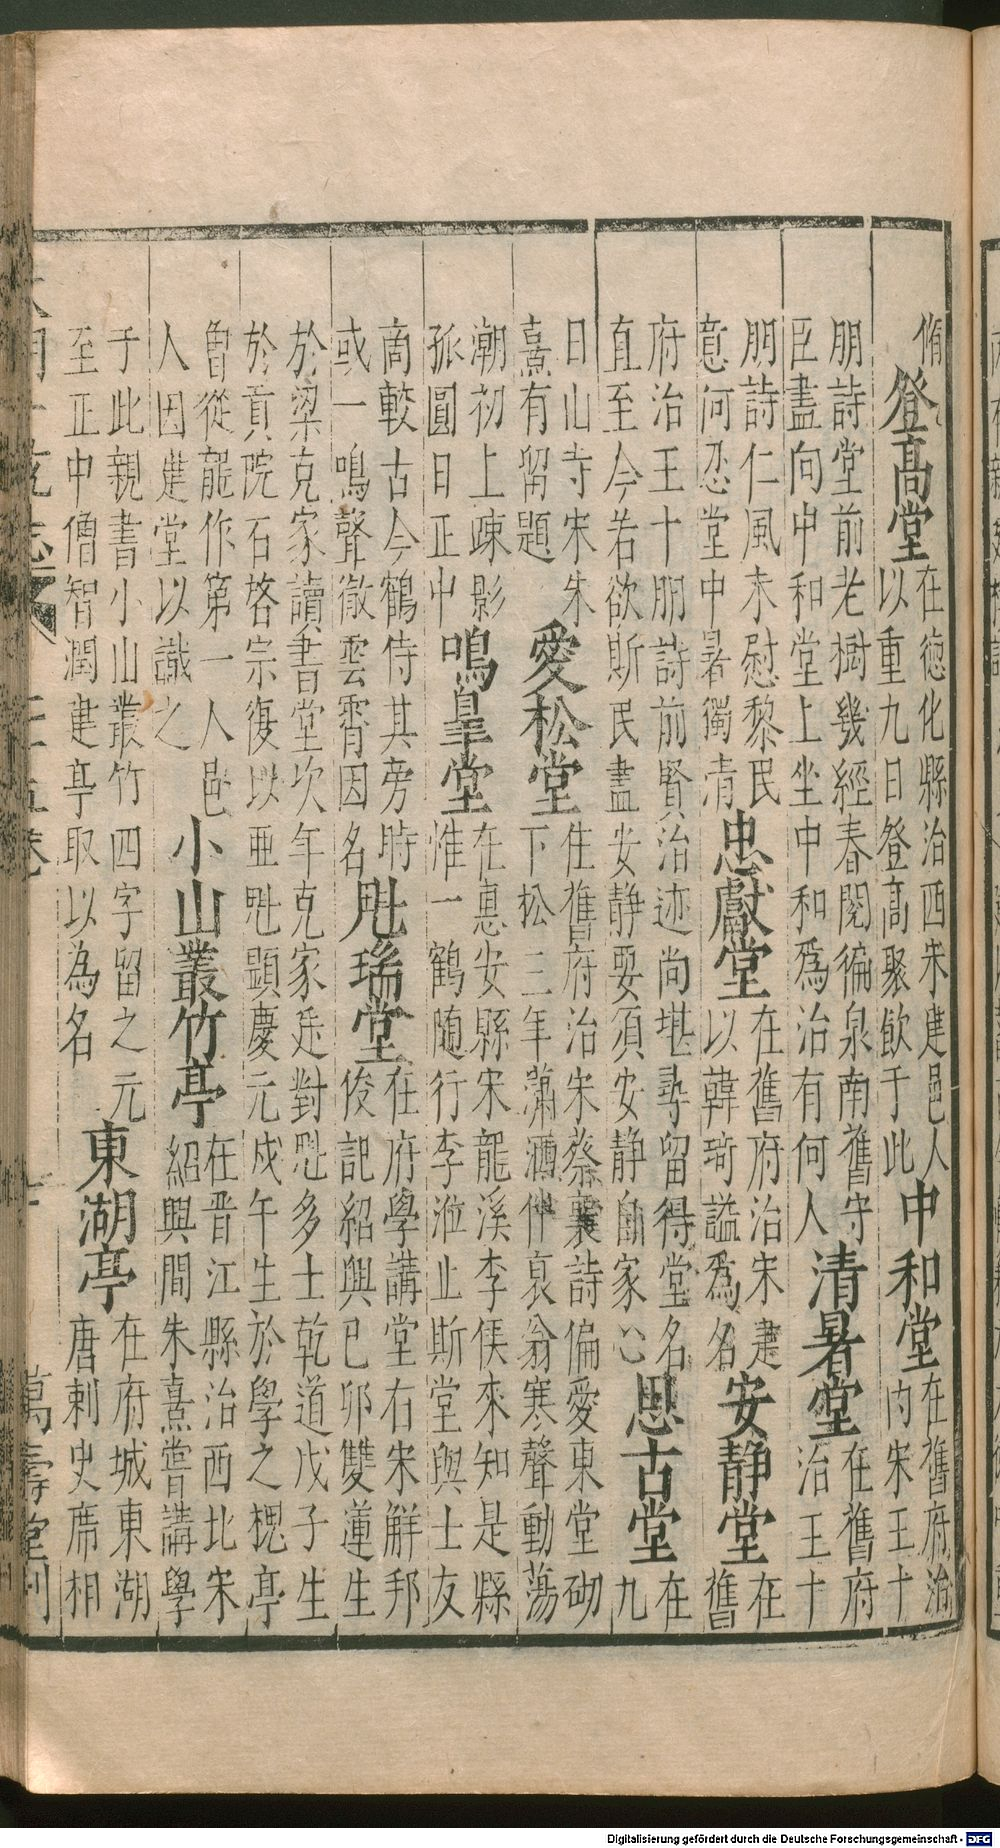 脩
登高堂
在德化縣治西宋建邑人
以重九日登高聚飲于此
中和堂
在舊府治
内宋王十
朋詩堂前老樹幾經春閱徧泉南舊守
臣盡向中和堂上坐中和為治有何人
清暑堂
在舊府
治王十
朋詩仁風未慰黎民
意何忍堂中暑獨清
忠獻堂
在舊府治宋建
以韓琦謚為名
安靜堂
在
舊
府治王十朋詩前賢治迹尚堪尋留得堂名
直至今若欲斯民盡安靜要須安靜自家心
思古堂
在
九
日山寺宋朱
熹有留題
愛松堂
在舊府治宋蔡襄詩偏愛東堂砌
下松三年瀟洒伴衰翁寒聲動蕩
潮初上疎影
孤圓日正中
鳴皋堂
在惠安縣宋龍溪李俁來知是縣
惟一鶴隨行李涖止斯堂與士友
啇較古今鶴侍其旁時
或一鳴聲徹雲霄因名
魁瑞堂
在府學講堂右宋鮮邦
俊記紹興己卯雙蓮生
於梁克家讀書堂次年克家廷對魁多士乾道戊子生
於貢院石啓宗復以亞魁顯慶元戊午生於學之槐亭
曾從龍作第一人邑
人因建堂以識之
小山叢竹亭
在晉江縣治西北宋
紹興間朱熹嘗講學
于此親書小山叢竹四字留之元
至正中僧智潤建亭取以為名
東湖亭
在府城東湖
唐刺史席相
萬壽堂刊
Digitalisierung gefördert durch die Deutsche Forschungsgemeinschaft - DFG